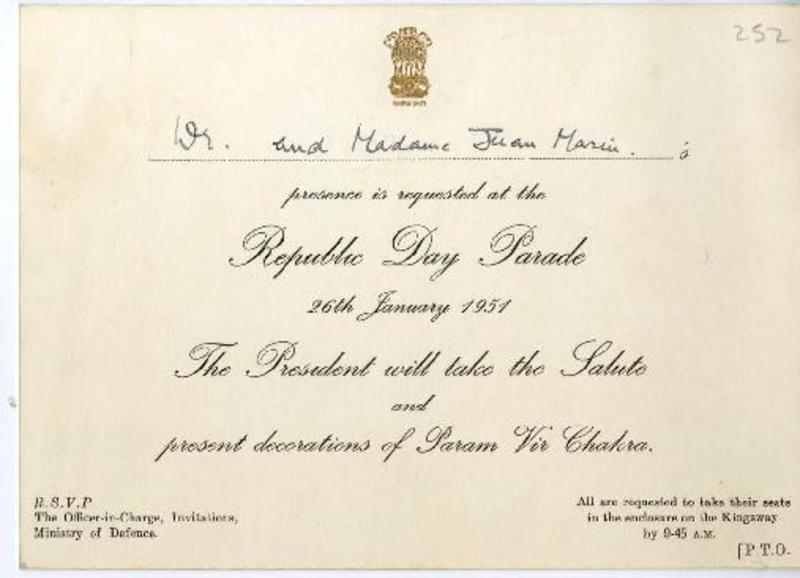 252
Dr. and Madame Juan Marin. 's
presence is requested at the
Republic Day Parade
26th January 1951
The President will take the Salute
and
present decorations of Param Vir Chakra.
R.S.V.P
The Officer-in-Charge, Invitations,
Ministry of Defence.
All are requested to take their seats
in the enclosure on the Kingsway
by 9-45 A.M.
[P.T.O.